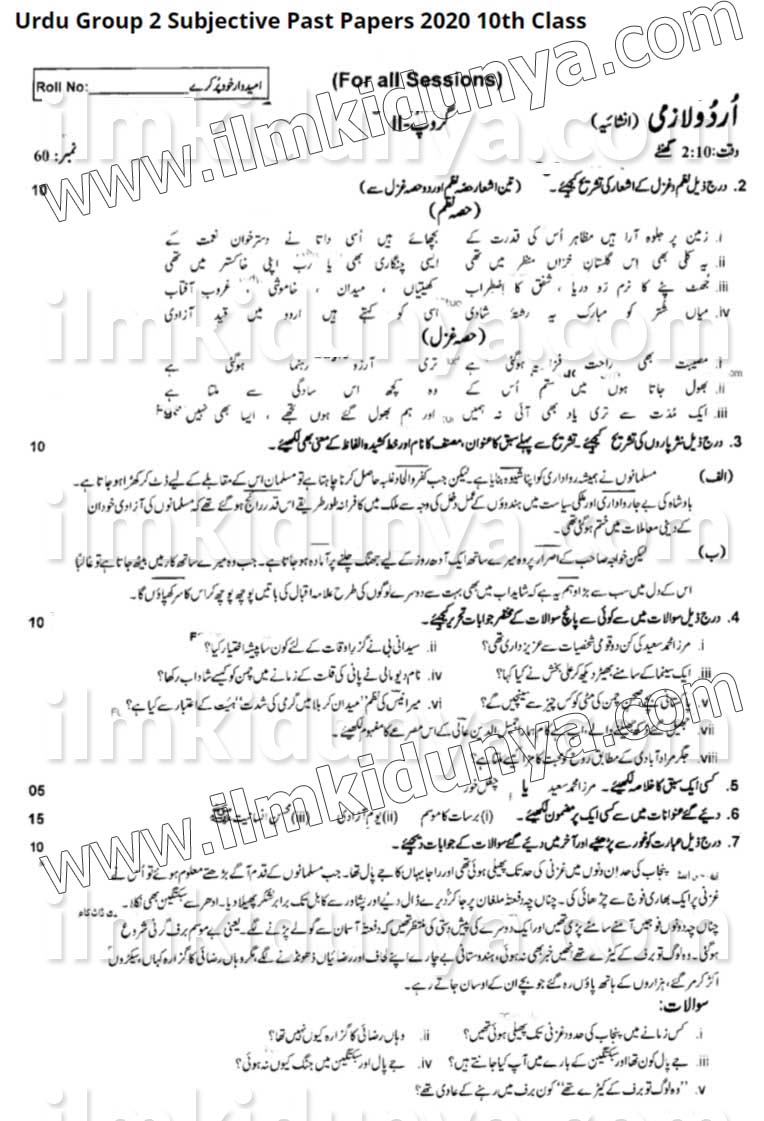 Urdu Group 2 Subjective Past Papers 2020 10th Class
(For all Sessions)
Roll No: امیدوار خود پُر کرے
اُردو لازمی (انشائیہ) گروپ-II
وقت: 2:10 گھنٹے نمبر: 60
2. درج ذیل نظم و غزل کے اشعار کی تشریح کیجئے۔ (تین اشعار حصہ نظم اور دو حصہ غزل سے) 10
(حصہ نظم)
i. زمین پر جلوہ آرا ہیں مظاہر اُس کی قدرت کے بچھائے ہیں اُسی داتا نے دسترخوان نعمت کے
ii. یہ کلی بھی اس گلستانِ خزاں منظر میں تھی ایسی چنگاری بھی یا رب اپنی خاکستر میں تھی
iii. جھٹ پٹے کا نرم رو دریا، شفق کا اضطراب کھیتیاں، میدان، خاموشی، غروبِ آفتاب
iv. میاں شتر کو مبارک یہ رشتۂ شادی اسی کو کہتے ہیں اردو میں قیدِ آزادی
(حصہ غزل)
i. مصیبت بھی راحت فزا ہوگئی ہے تری آرزو رہنما ہوگئی ہے
ii. بھول جاتا ہوں میں ستم اُس کے وہ کچھ اس سادگی سے ملتا ہے
iii. ایک مدت سے تری یاد بھی آئی نہ ہمیں اور ہم بھول گئے ہوں تجھے، ایسا بھی نہیں
3. درج ذیل نثرپاروں کی تشریح کیجئے۔ تشریح سے پہلے سبق کا عنوان، مصنف کا نام اور خط کشیدہ الفاظ کے معنی بھی لکھئے۔ 10
(الف) مسلمانوں نے ہمیشہ رواداری کو اپنا شیوہ بنایا ہے۔ لیکن جب کفر و الحاد غلبہ حاصل کرنا چاہتا ہے تو مسلمان اس کے مقابلے کے لیے ڈٹ کر کھڑا ہو جاتا ہے۔
بادشاہ کی بے جا رواداری اور ملکی سیاست میں ہندوؤں کے عمل دخل کی وجہ سے ملک میں کافرانہ طور طریقے اس قدر رائج ہو گئے تھے کہ مسلمانوں کی آزادی خود ان
کے دینی معاملات میں ختم ہو گئی تھی۔
(ب) لیکن خواجہ صاحب کے اصرار پر وہ میرے ساتھ ایک آدھ روز کے لیے جھنگ چلنے پر آمادہ ہو جاتا ہے۔ جب وہ میرے ساتھ کار میں بیٹھ جاتا ہے تو غالباً
اس کے دل میں سب سے بڑا وہم یہ ہے کہ شاید اب میں بھی بہت سے دوسرے لوگوں کی طرح علامہ اقبال کی باتیں پوچھ پوچھ کر اس کا سر کھپاؤں گا۔
4. درج ذیل سوالات میں سے کوئی سے پانچ سوالات کے مختصر جوابات تحریر کیجئے۔ 10
i. مرزا محمد سعید کی کن دو قومی شخصیات سے عزیز داری تھی؟ ii. سیدانی بی نے گزر اوقات کے لئے کون سا پیشہ اختیار کیا؟
iii. ایک سینما کے سامنے بھیڑ دیکھ کر علی بخش نے کیا کہا؟ iv. نام دیو مالی نے پانی کی قلت کے زمانے میں چمن کو کیسے شاداب رکھا؟
v. پاکستانی بچے صحنِ چمن کی مٹی کو کس چیز سے سینچیں گے؟ vi. میر انیس کی نظم "میدانِ کربلا میں گرمی کی شدت" ہیئت کے اعتبار سے کیا ہے؟
vii. جمیل الدین عالی کے اس مصرعے کا مفہوم لکھئے۔
viii. جگر مراد آبادی کے مطابق روح کو محبت کا مزا کیسے ملتا ہے؟
5. کسی ایک سبق کا خلاصہ لکھئے۔ مرزا محمد سعید یا چغل خور 05
6. دیئے گئے عنوانات میں سے کسی ایک پر مضمون لکھئے۔ (i) برسات کا موسم (ii) یومِ آزادی (iii) محسنِ انسانیت ﷺ 15
7. درج ذیل عبارت کو غور سے پڑھیے اور آخر میں دیئے گئے سوالات کے جوابات دیجئے۔ 10
پنجاب کی حد ان دنوں میں غزنی کی حد تک پھیلی ہوئی تھی اور راجا یہاں کا جے پال تھا۔ جب مسلمانوں کے قدم آگے بڑھتے معلوم ہوئے تو اُس نے
غزنی پر ایک بھاری فوج سے چڑھائی کی۔ چناں چہ دفعۃً ملغان پر جا کر ڈیرے ڈال دیے اور پشاور سے کابل تک برابر لشکر پھیلا دیا۔ ادھر سے سبکتگین بھی نکلا۔
چناں چہ دونوں فوجیں آمنے سامنے پڑی تھیں اور ایک دوسرے کی پیش دستی کی منتظر تھیں کہ دفعۃً آسمان سے گولے پڑنے لگے۔ یعنی بے موسم برف گرنی شروع
ہو گئی۔ وہ لوگ تو برف کے کیڑے تھے انھیں خبر بھی نہ ہوئی، ہندوستانی بے چارے اپنے لحاف اور رضائیاں ڈھونڈنے لگے، مگر وہاں رضائی کا گزارہ کہاں، سیکڑوں
اکڑ کر مر گئے، ہزاروں کے ہاتھ پاؤں رہ گئے جو بچے ان کے اوسان جاتے رہے۔
سوالات:
i. کس زمانے میں پنجاب کی حدود غزنی تک پھیلی ہوئی تھیں؟ ii. وہاں رضائی کا گزارہ کیوں نہیں تھا؟
iii. جے پال کون تھا اور سبکتگین کے بارے میں آپ کیا جانتے ہیں؟ iv. جے پال اور سبکتگین میں جنگ کیوں نہ ہوئی؟
v. "وہ لوگ تو برف کے کیڑے تھے" کون برف میں رہنے کے عادی تھے؟
www.ilmkidunya.com
ilmkidunya.com